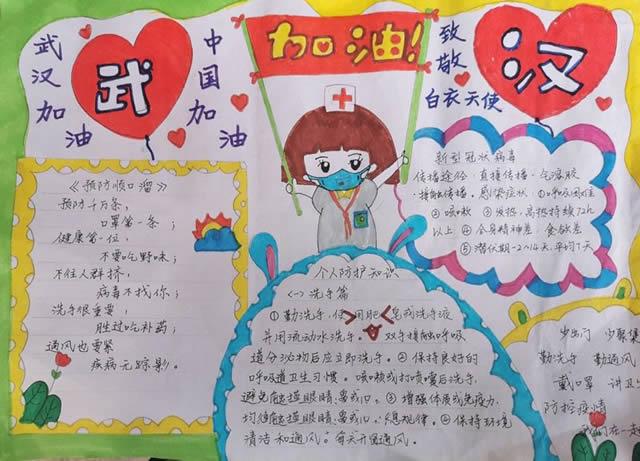 武汉加油
武
中国加油
加油!
致敬
白衣天使
汉
《预防顺口溜》
预防千万条,
口罩第一条;
健康第一位,
不要吃野味;
不住人群挤,
病毒不找你;
洗手很重要,
胜过吃补药;
通风也要紧
疾病无踪影.
新型冠状病毒
传播途径·直接传播·气溶胶
·接触传播。感染症状 ①呼吸困难
②咳嗽 ③发热、高热持续72h
以上 ④全身精神差·食欲差
⑤潜伏期-2~14天,平均7天
个人防护知识
(一)洗手篇
①勤洗手,使用肥皂或洗手液
并用流动水洗手。双手接触呼吸
道分泌物后应立即洗手。②保持良好的
呼吸道卫生习惯。咳嗽或打喷嚏后洗手,
避免触摸眼睛、鼻或口。③增强体质或免疫力,
均触摸眼睛、鼻或口、息规律。④保持环境
清洁和通风。每天开窗通风。
少出门 少聚集
勤洗手 勤通风
戴口罩 讲卫
防控疫情
我们在一起